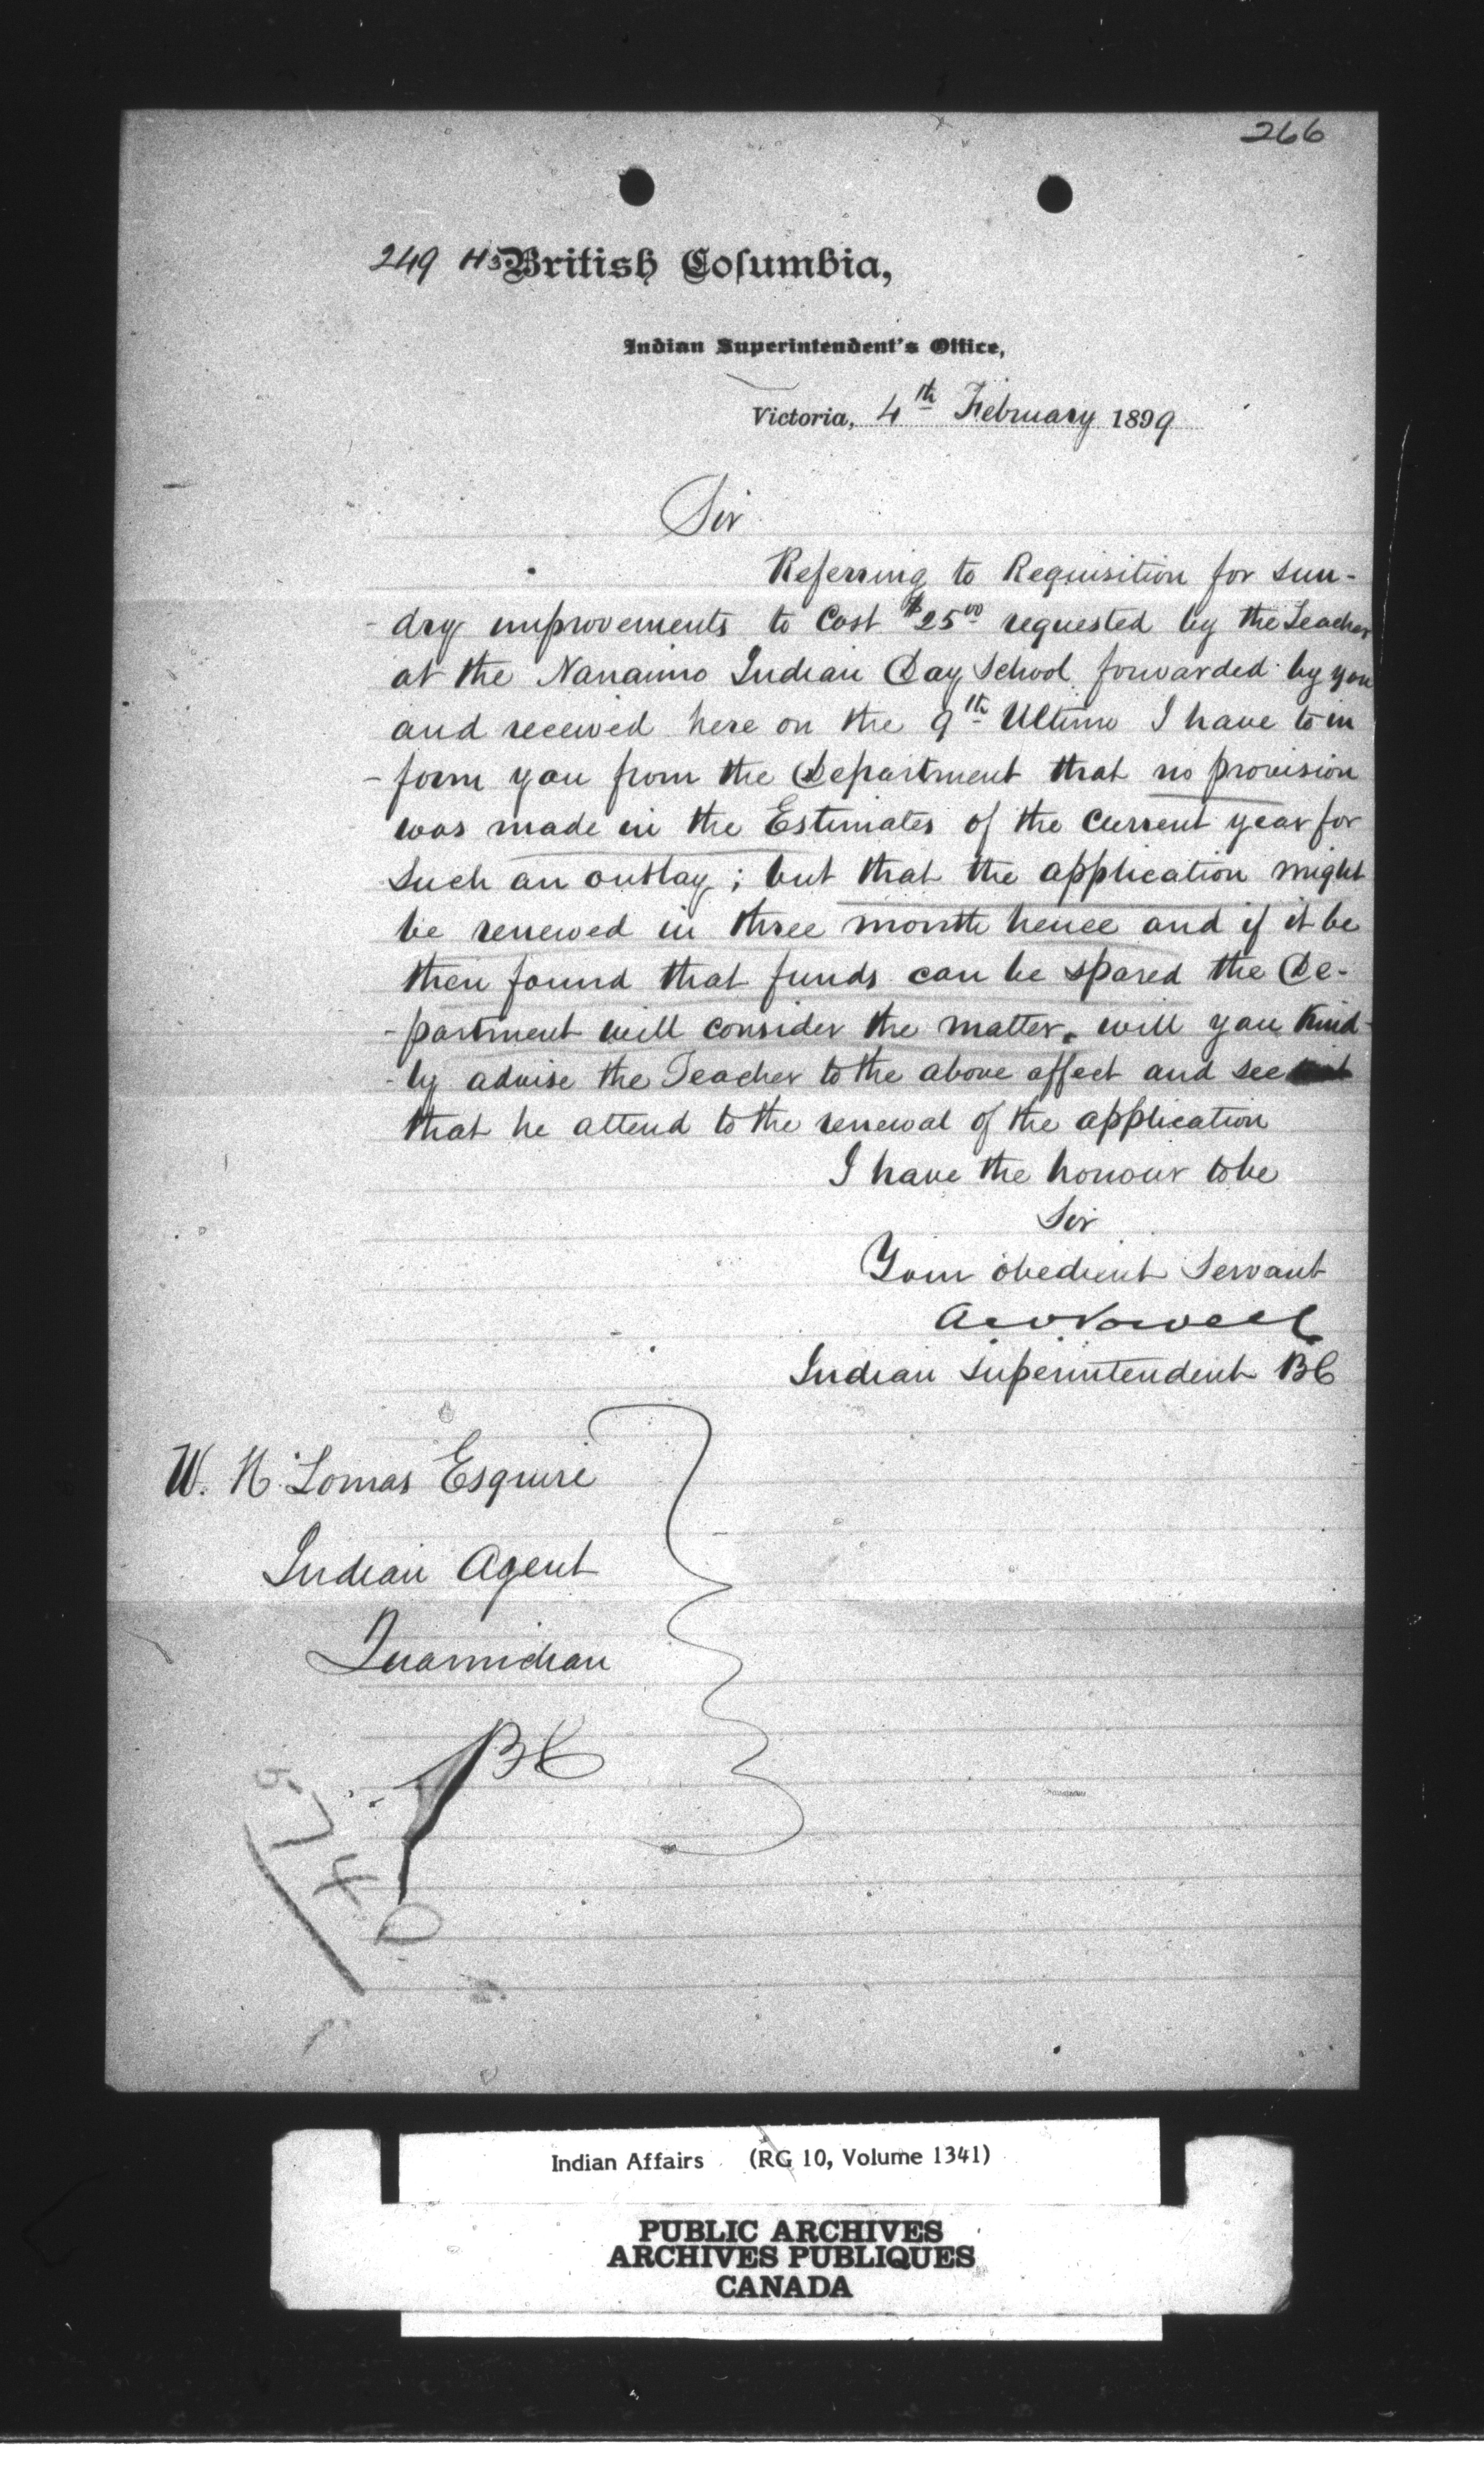 266
249 H5 British Columbia,
Indian Superintendent's Office,
Victoria, 4th February 1899
Sir
Referring to Requisition for sun-
- dry improvements to Cost $25 00 requested by the Teacher
at the Nanaimo Indian Day School forwarded by you
and received here on the 9th Ultimo I have to in
- form you from the Department that no provision
was made in the Estimates of the current year for
such an outlay; but that the application might
be renewed in three month hence and if it be
then found that funds can be spared the De-
- partment will consider the matter. will you kind-
- ly advise the Teacher to the above affect and see
that he attend to the renewal of the application
I have the honour to be
Sir
Your obedient Servant
A W Vowell
Indian Superintendent BC
W. H. Lomas Esquire
Indian Agent
Quamichan
BC
5740
Indian Affairs (RG 10, Volume 1341)
PUBLIC ARCHIVES
ARCHIVES PUBLIQUES
CANADA